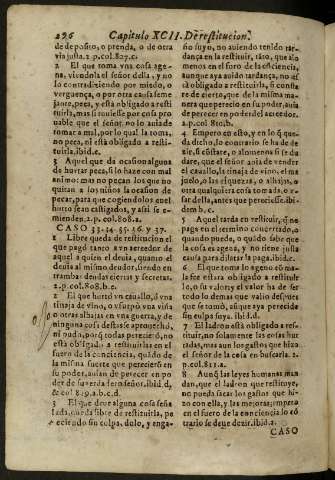 296 Capitulo XCII. De restitucion.
de deposito, o prenda, o de otra
via justa. 2. p. col. 807. c.
2 El que toma vna cosa agena,
viendola el señor della, y no
lo contradiziendo por miedo, o
verguença, o por otra causa semejante,
peca, y está obligado a restituirla,
mas si tuuiesse por cosa prouable
que el señor no lo auia de
tomar a mal, por lo qual la toma,
no peca, ni está obligado a restituirla,
ibid. c.
3 Aquel que da ocasion alguna
de hurtar peca, si lo haze con mal
animo: mas no pecan los que no
quitan a los niños la ocasion de
pecar, para que cogiendolos en el
hurto sean castigados, y assi se emienden.
2. p. col. 808. a.
CASO 33. 34. 35. 36. y 37.
1 Libre queda de restitucion el
que pagó tanto a vn acreedor de
aquel a quien el deuia, quanto el
deuia al mismo deudor, siendo entrambas
deudas ciertas y secretas.
2. p. col. 808. b. c.
2 El que hurtó vn cauallo, o vna
tinaja de vino, o vsurpó vna viña
o otras alhajas en vna guerra, y de
ninguna cosa destas se aprouechó,
ni pudo, porq̃ todas perecieró, no
está obligado a restituirlas en el
fuero de la conciencia, quãdo de
la misma suerte que perecieró en
su poder, auian de perecer en poder
de su verdadero señor. ibid. d.
& col. 809. a. b. c. d.
3 El que deue alguna cosa señalada,
queda libre de restituirla, pereciendo
sin culpa, dolo, y engaño
suyo, no auiendo tenido tardança
en la restituir, tãto, que alomenos
en el foro de la conciencia,
aunque aya auido tardança, no está
obligado a restituirla, si constare
de cierto, que de la misma manera
que perecio en su poder, auia
de perecer en poder del acreedor.
col. 810. b.
4 Empero en esto, y en lo q̃ queda
dicho, lo contrario se ha de dezir,
si se dudare, o alomenos si se dudare,
que el señor auia de vender
el cauallo, la tinaja de vino, el majuelo,
o las riquezas, o alhajas, o
otra qualquiera cosa tomada, o restar
della, antes que pereciesse. ibidem
b. c.
5 Aquel tarda en restituir, q̃ no
paga en el termino concertado, o
quando puede, o quãdo sabe que
la cosa es agena, y no tiene justa
causa para dilatar la paga. ibid. c.
6 El que toma lo ageno có mala
fee està obligado a restituirlo,
o su valor, y no se ha de hazer
todo lo demas que valio despues
que se tomó, aunque aya perecido
sin culpa suya. ibid. d.
7 El ladron está obligado a restituir,
no solamente las cosas hurtadas,
mas aun los gastos que hizo
el señor de la cosa en buscarla. 2.
p. col. 811. a.
8 Aunq̃ las leyes humanas mandan,
que el ladron que restituye,
no pueda sacar los gastos que hizo
con ella, y las mejoras; empero
en el fuero de la conciencia lo cótrario
se deue dezir. ibid. b.
CASO